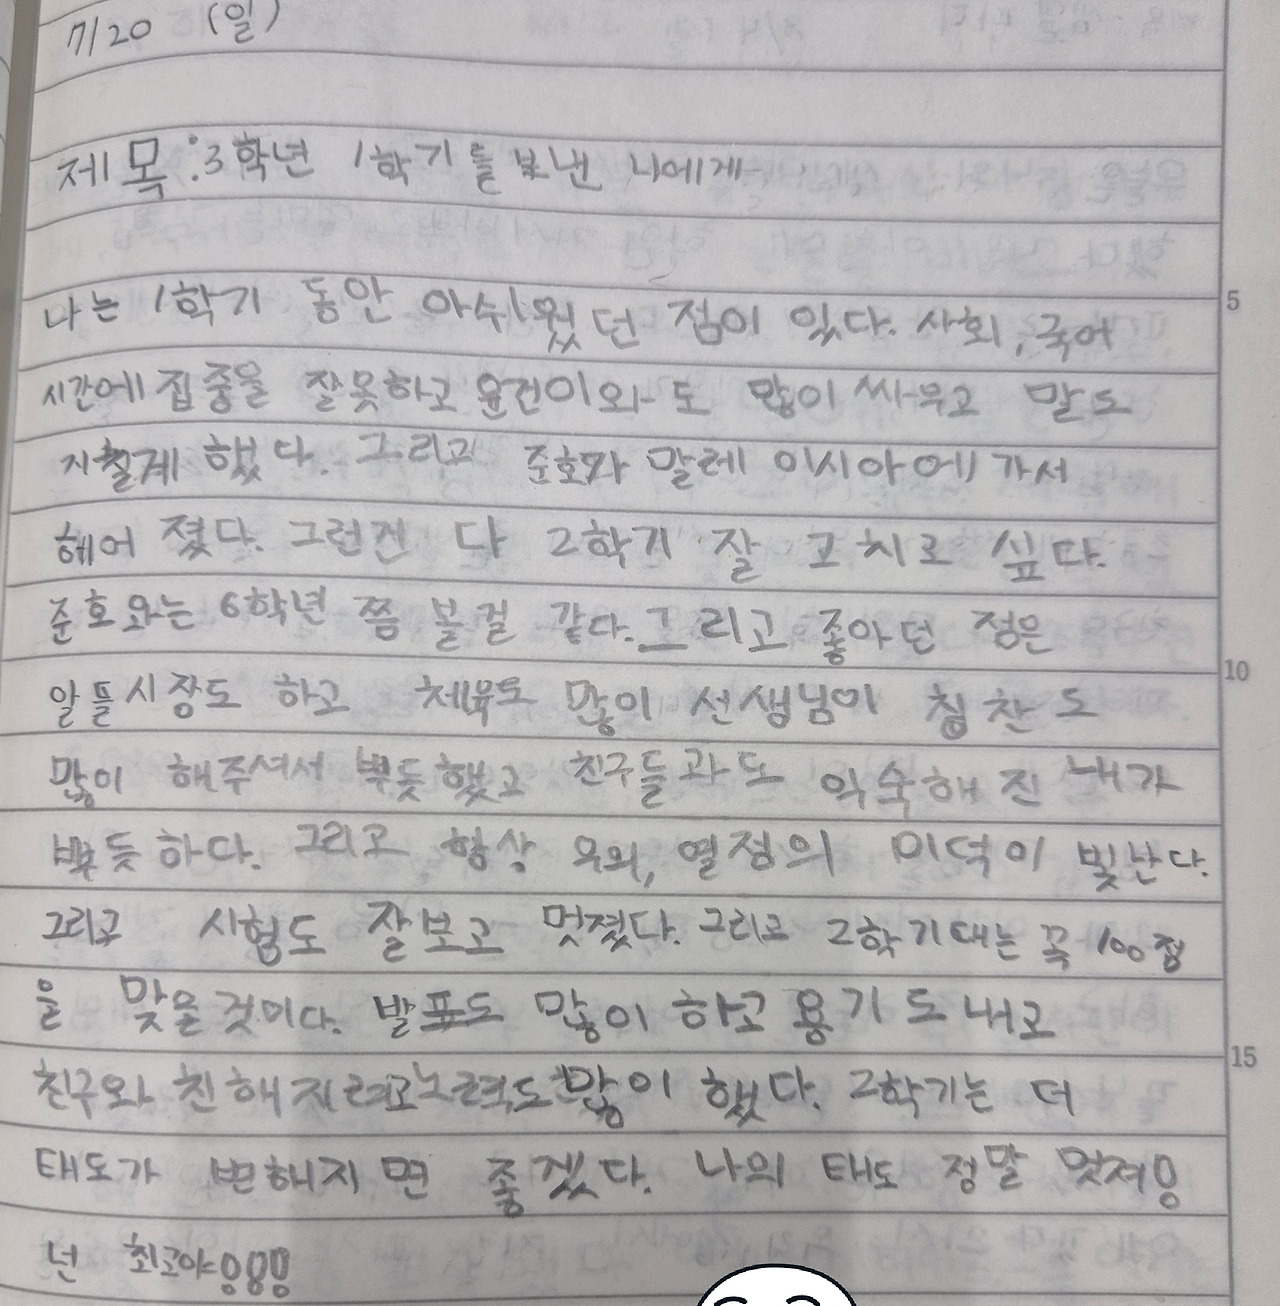 7/20 (일)
제목:3학년 1학기를 보낸 나에게
나는 1학기 동안 아쉬웠던 점이 있다. 사회, 국어
시간에 집중을 잘못하고 윤건이와도 많이 싸우고 말도
했다. 그리고 준호가 말레이시아에 가서
헤어졌다. 그런건 다 2학기 잘 고치로 싶다.
준호와는 6학년 쯤 볼걸 같다. 그리고 좋아던 점은
알뜰시장도 하고 체육도 많이 선생님이 칭찬도
많이 해주셔서 뿌듯했고 친구들과도 익숙해진 내가
뿌듯하다. 그리고 항상 우의, 열정의 미덕이 빛난다.
그리고 시험도 잘보고 멋졌다. 그리고 2학기대는 꼭 100점
을 맞을것이다. 발표도 많이 하고 용기도 내고
친구와 친해지려고 노력도 많이 했다. 2학기는 더
태도가 변해지면 좋겠다. 나의 태도 정말 멋져!
넌 최고야!!!
5
10
15